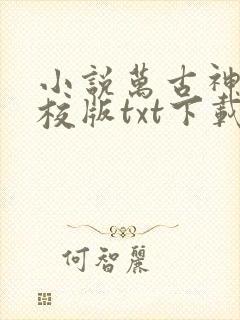 小說萬古神
校版txt下載
何智麗